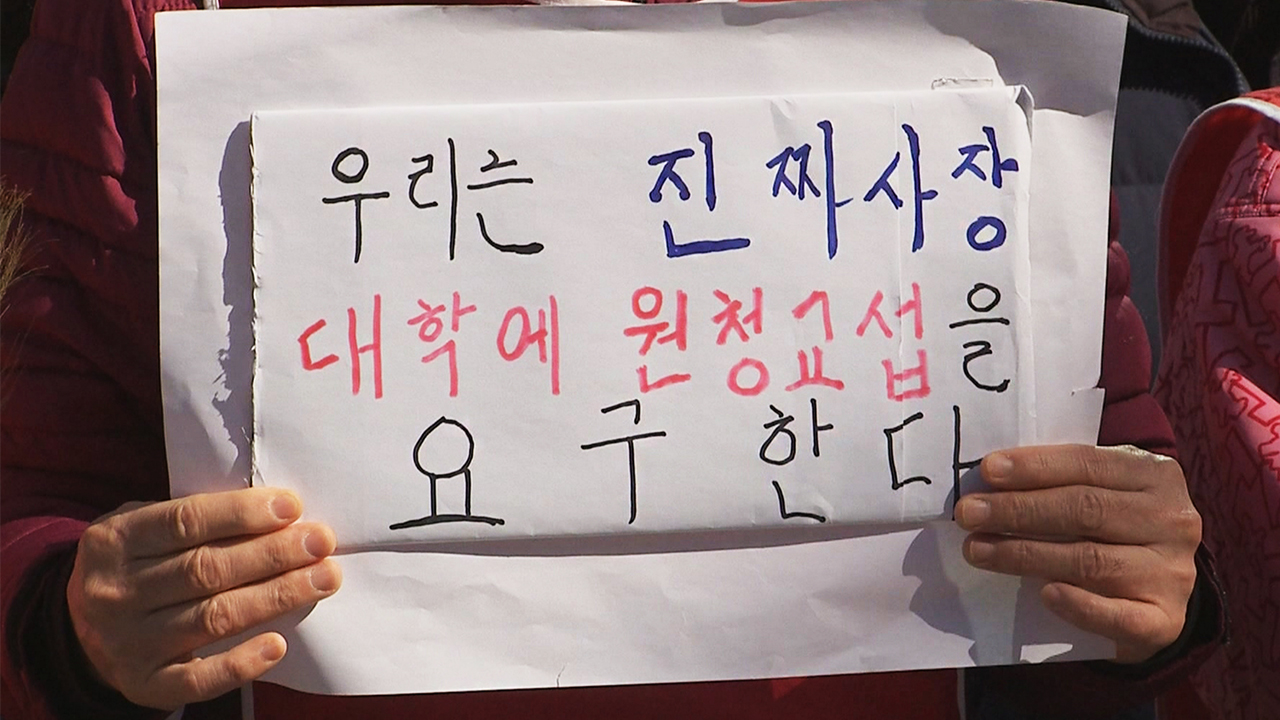 우리는 진짜사장
대학에 원청교섭을
요구한다